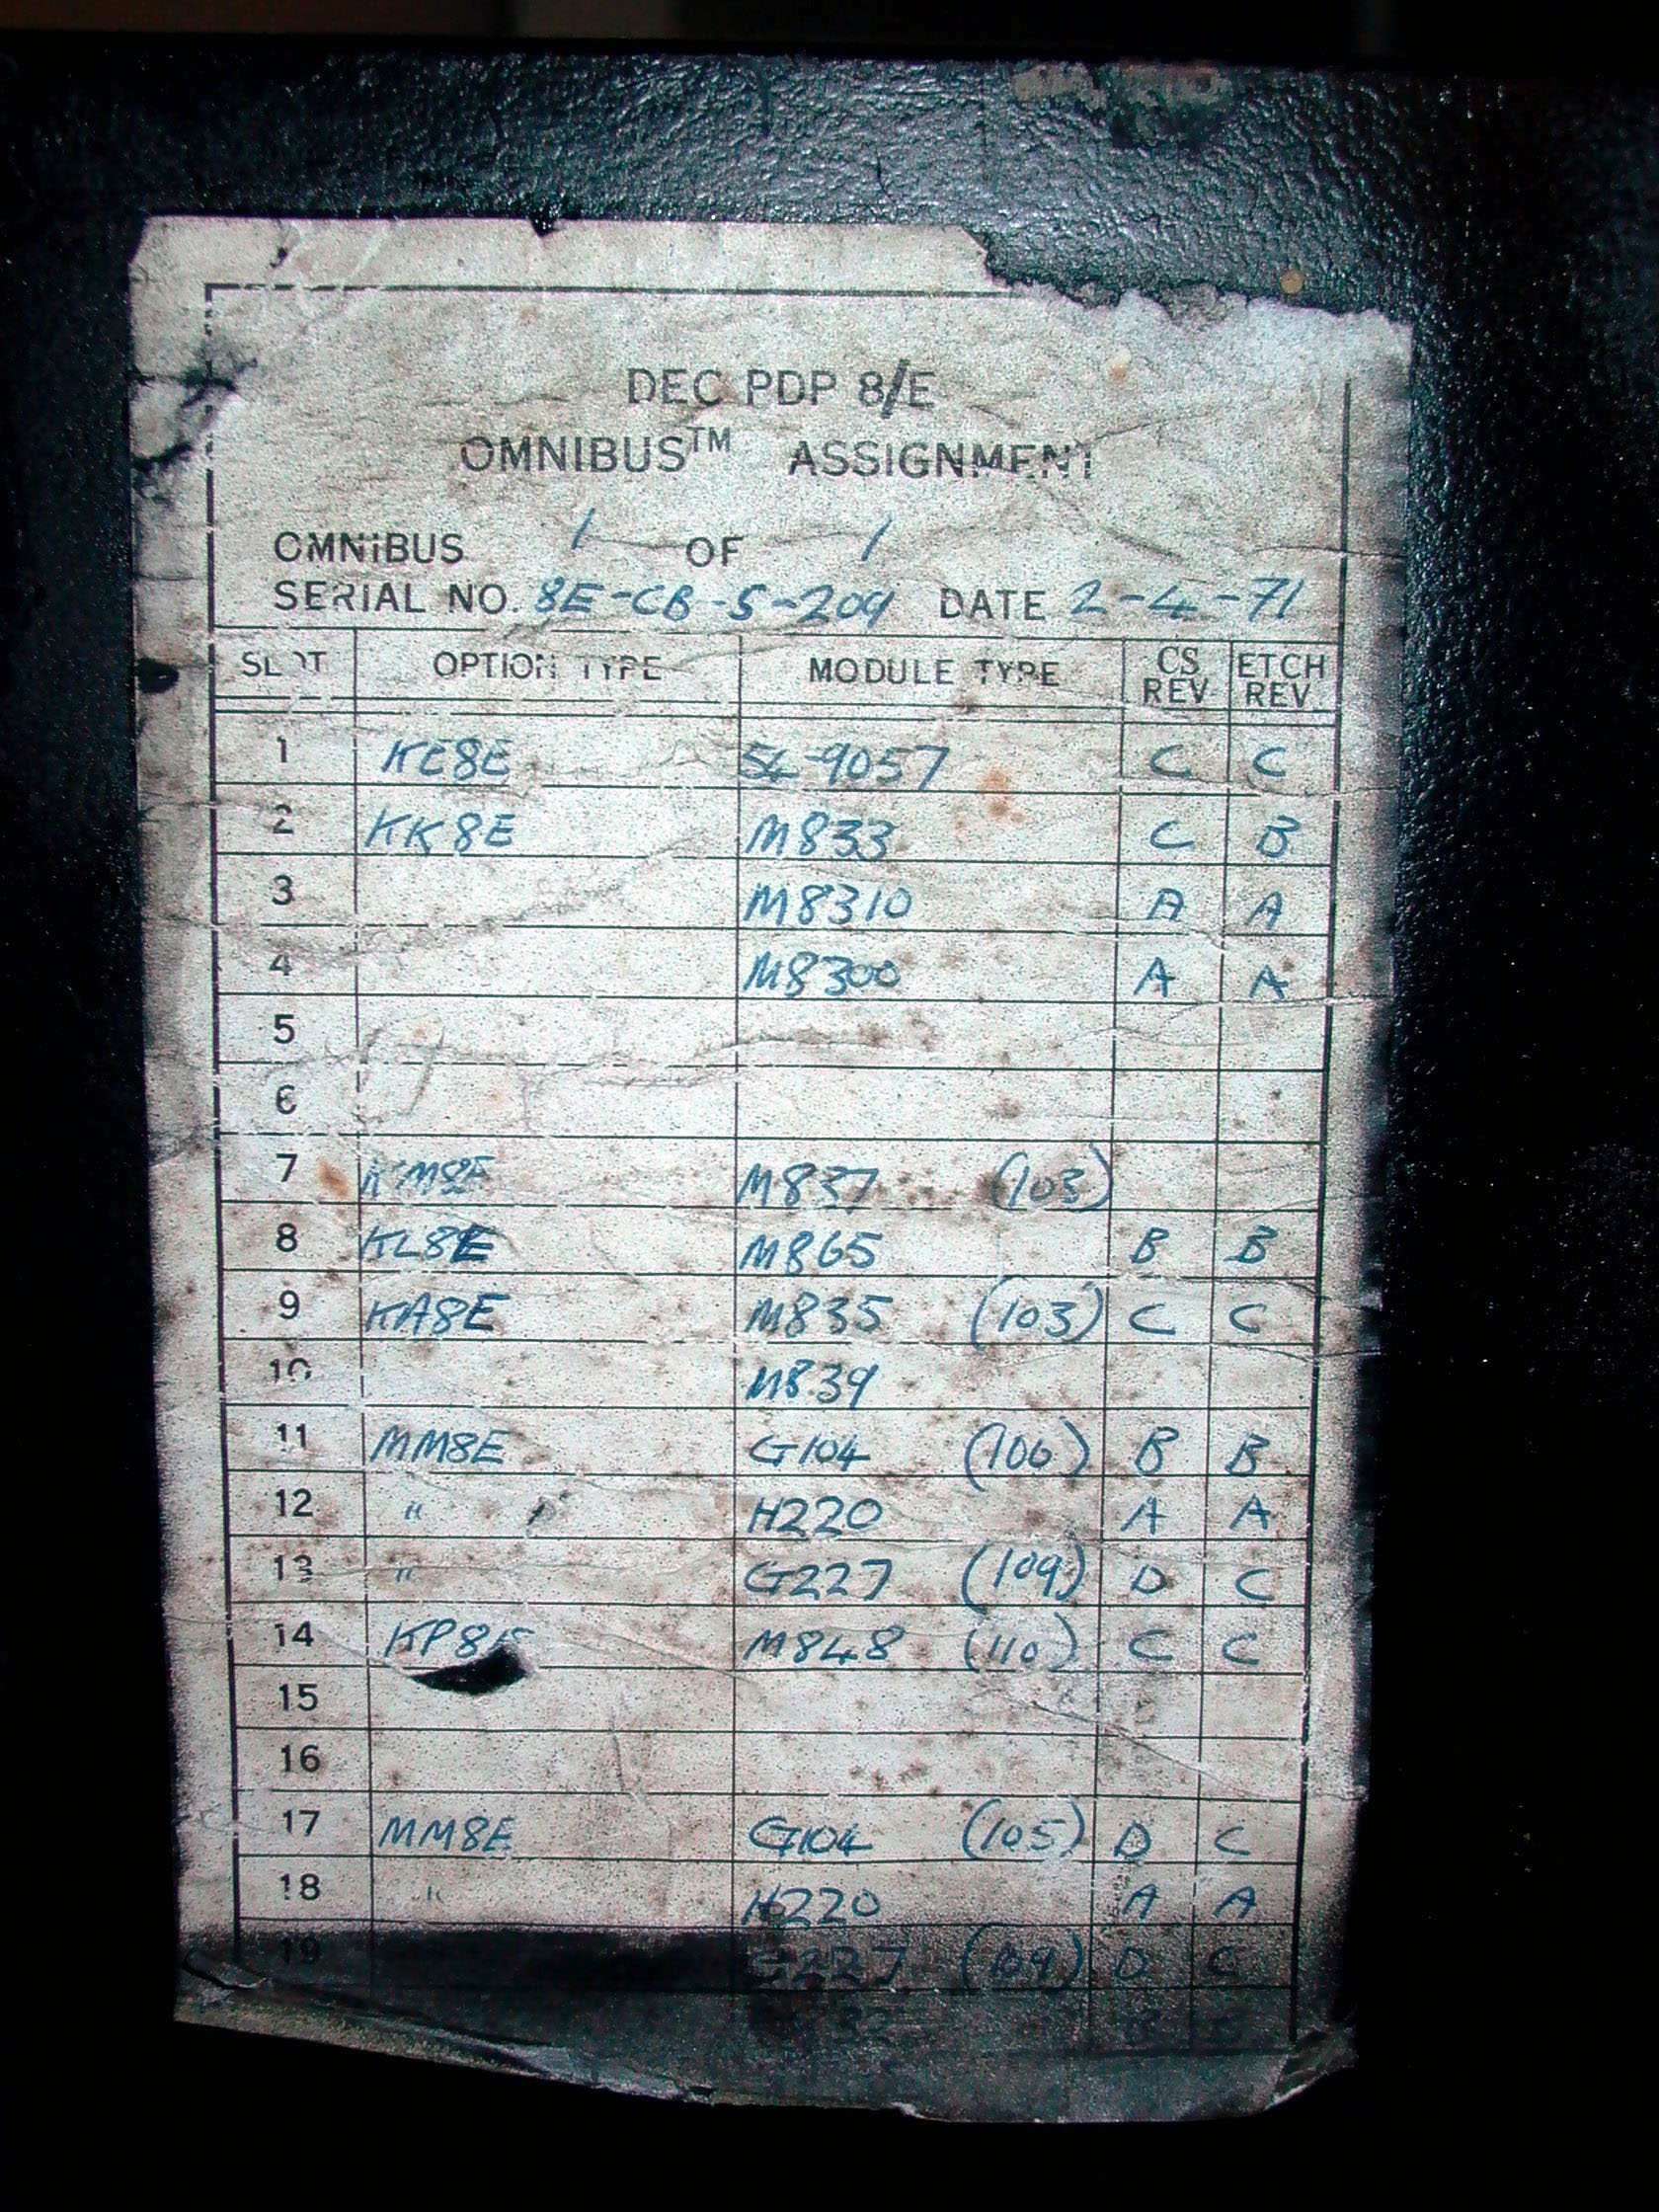 DEC PDP 8/E
OMNIBUS™ ASSIGNMENT
OMNIBUS 1 OF 1
SERIAL NO. 8E-CB-S-209 DATE 2-4-71
SLOT OPTION TYPE MODULE TYPE CS REV ETCH REV
1 KC8E 54-9057 C C
2 KK8E M833 C B
3 M8310 A A
4 M8300 A A
5
6
7 KM8E M837 (103)
8 KL8E M865 B B
9 KA8E M835 (103) C C
10 M839
11 MM8E G104 (106) B B
12 " " H220 A A
13 " G227 (109) D C
14 KP8E M848 (110) C C
15
16
17 MM8E G104 (105) D C
18 " H220 A A
19 G227 (109) D C